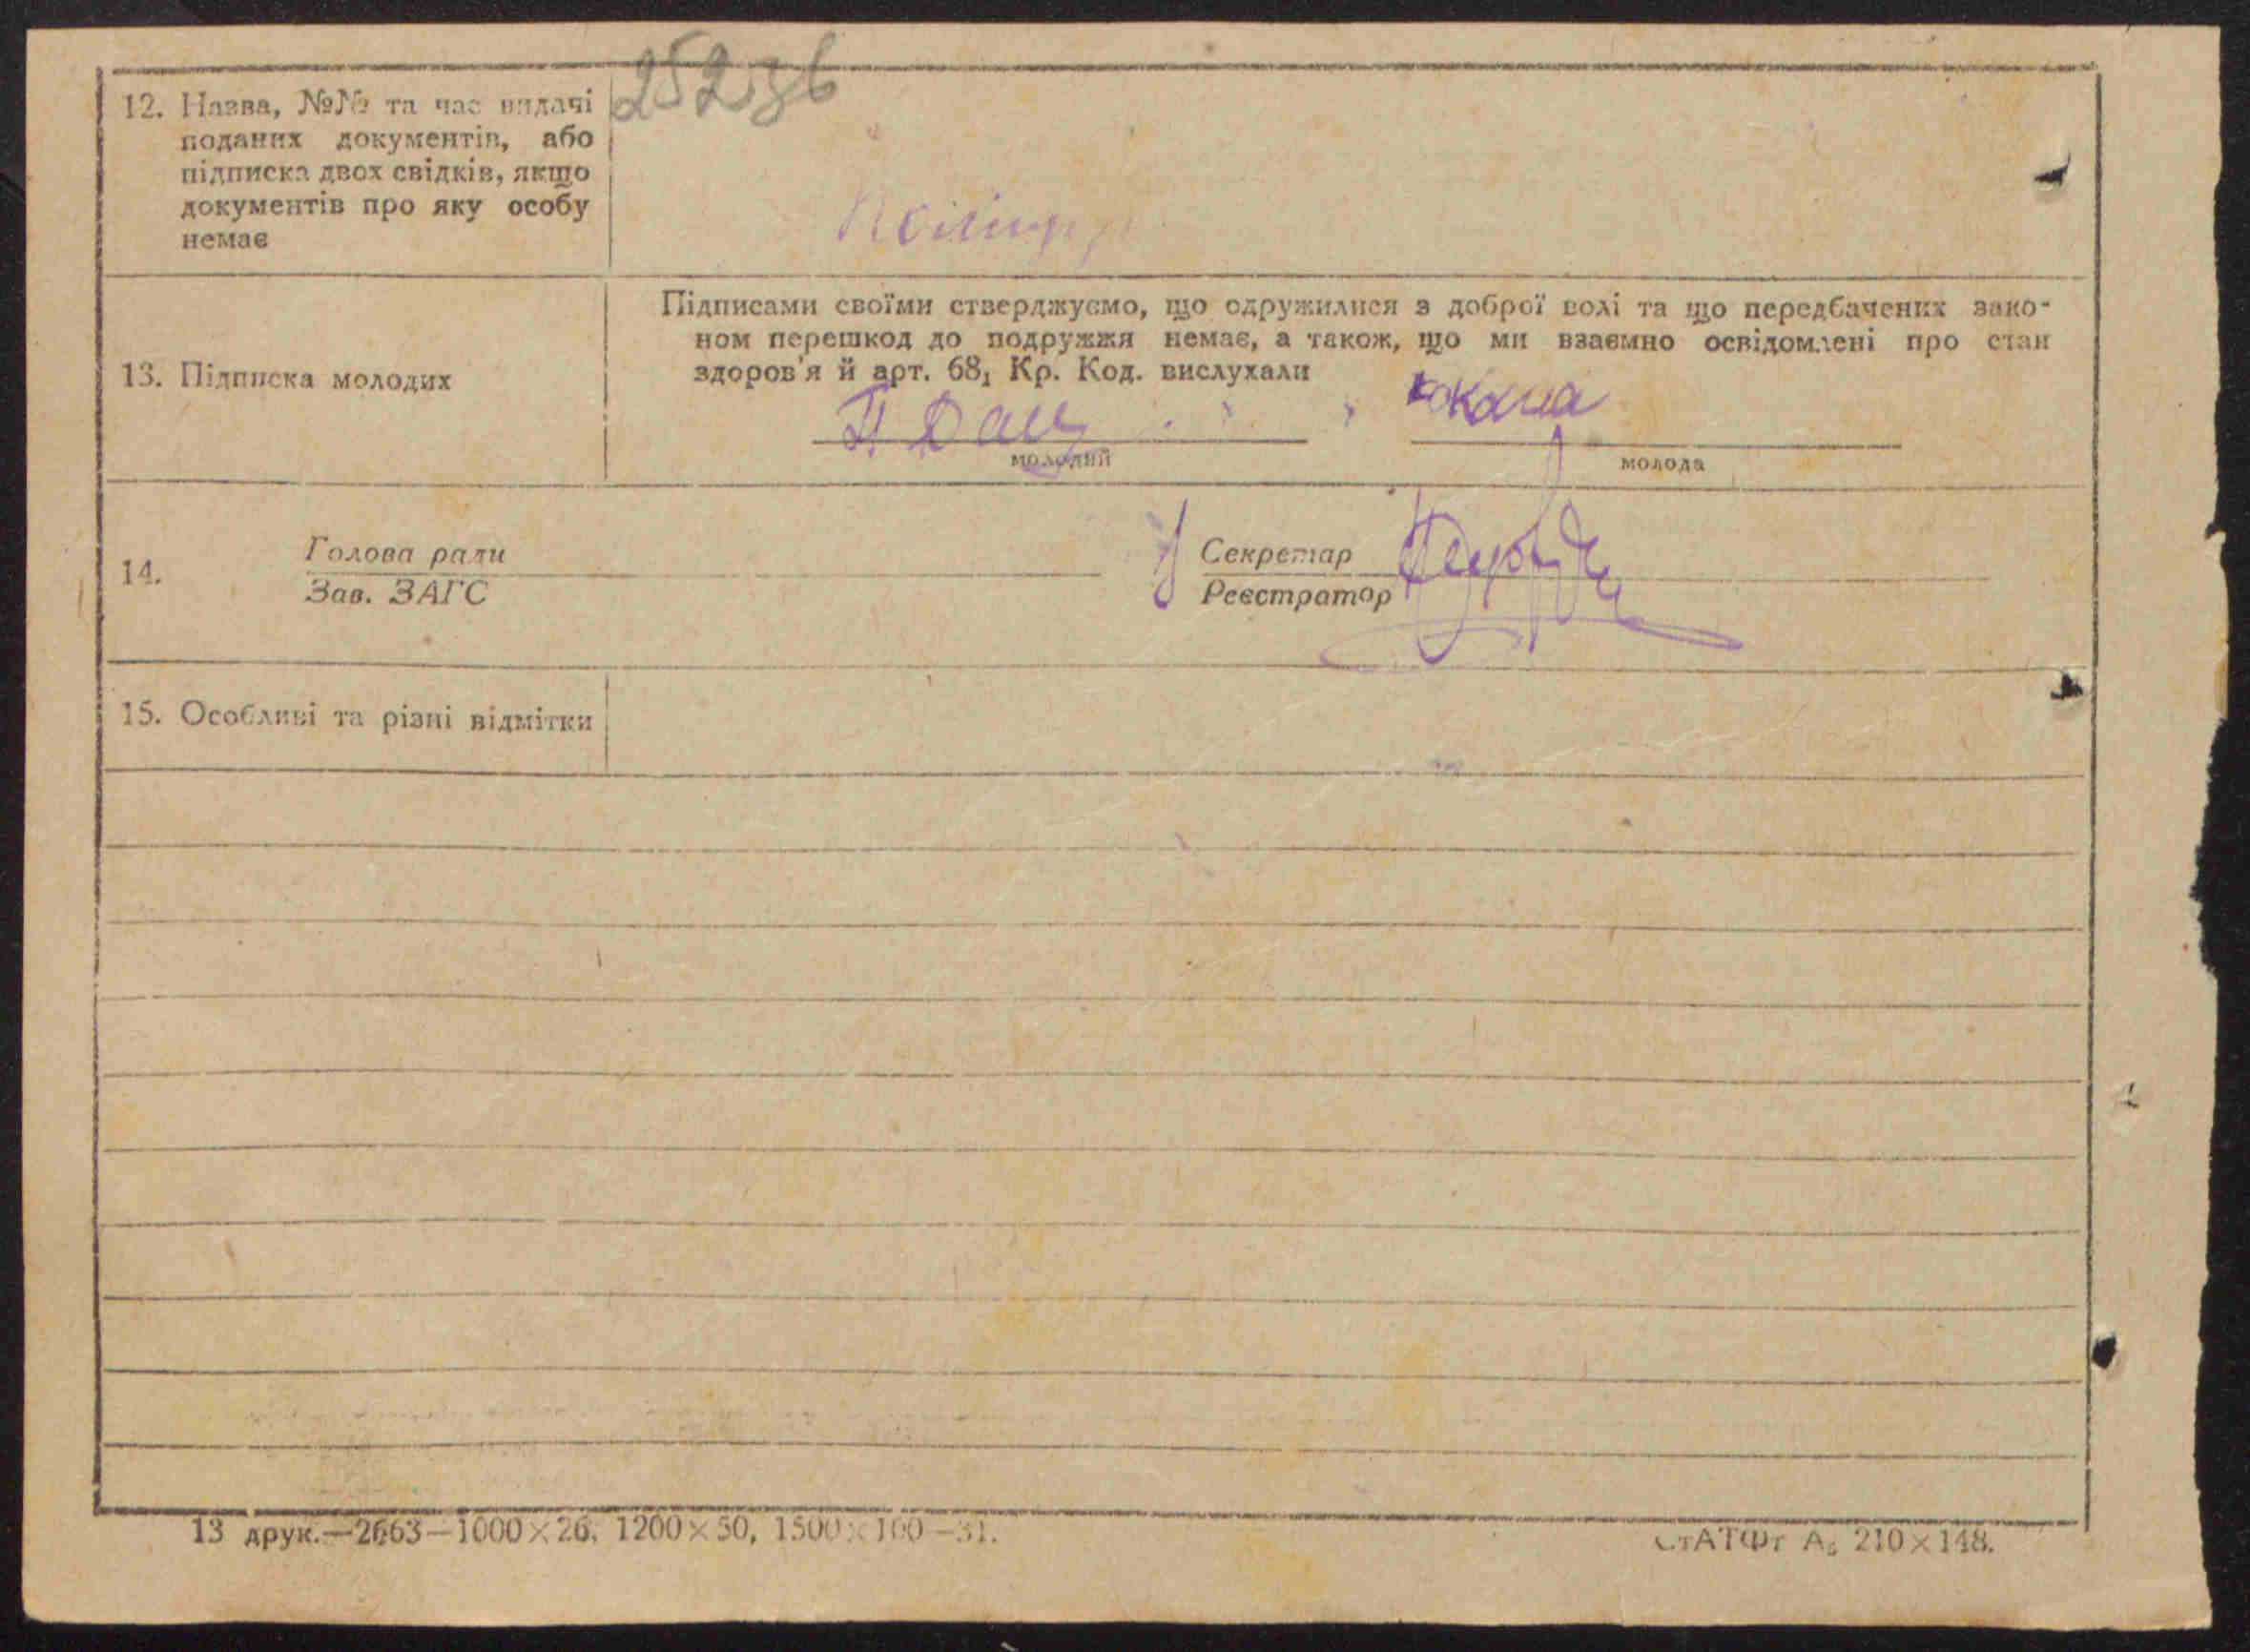 25236
12. Назва, №№ та час видачі
поданих документів, або
підписка двох свідків, якщо
документів про яку особу
немає
13. Підписка молодих
Підписами своїми стверджуємо, що одружилися з доброї волі та що передбачених зако-
ном перешкод до подружжя немає, а також, що ми взаємно освідомлені про стан
здоров'я й арт. 68₁ Кр. Код. вислухали
молодий
молода
14.
Голова ради
Зав. ЗАГС
Секретар
Реєстратор
15. Особливі та різні відмітки
13 друк.—2663—1000×26, 1200×50, 1500×100—31.
СтАТФт А₅ 210×148.